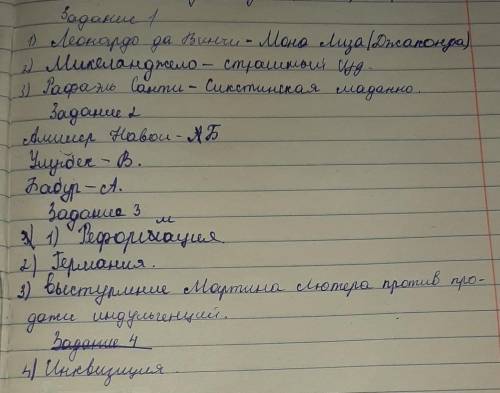 Задание 1
1) Леонардо да Винчи - Мона Лиза (Джаконда)
2) Микеланджело - страшный суд.
3) Рафаэль Санти - Сикстинская маданно.
Задание 2
Алишер Навои - Б
Улугбек - В.
Бабур - А.
Задание 3
1) Реформация
2) Германия.
3) Выступление Мартина Лютера против про-
дажи индульгенций.
Задание 4
4) Инквизиция.